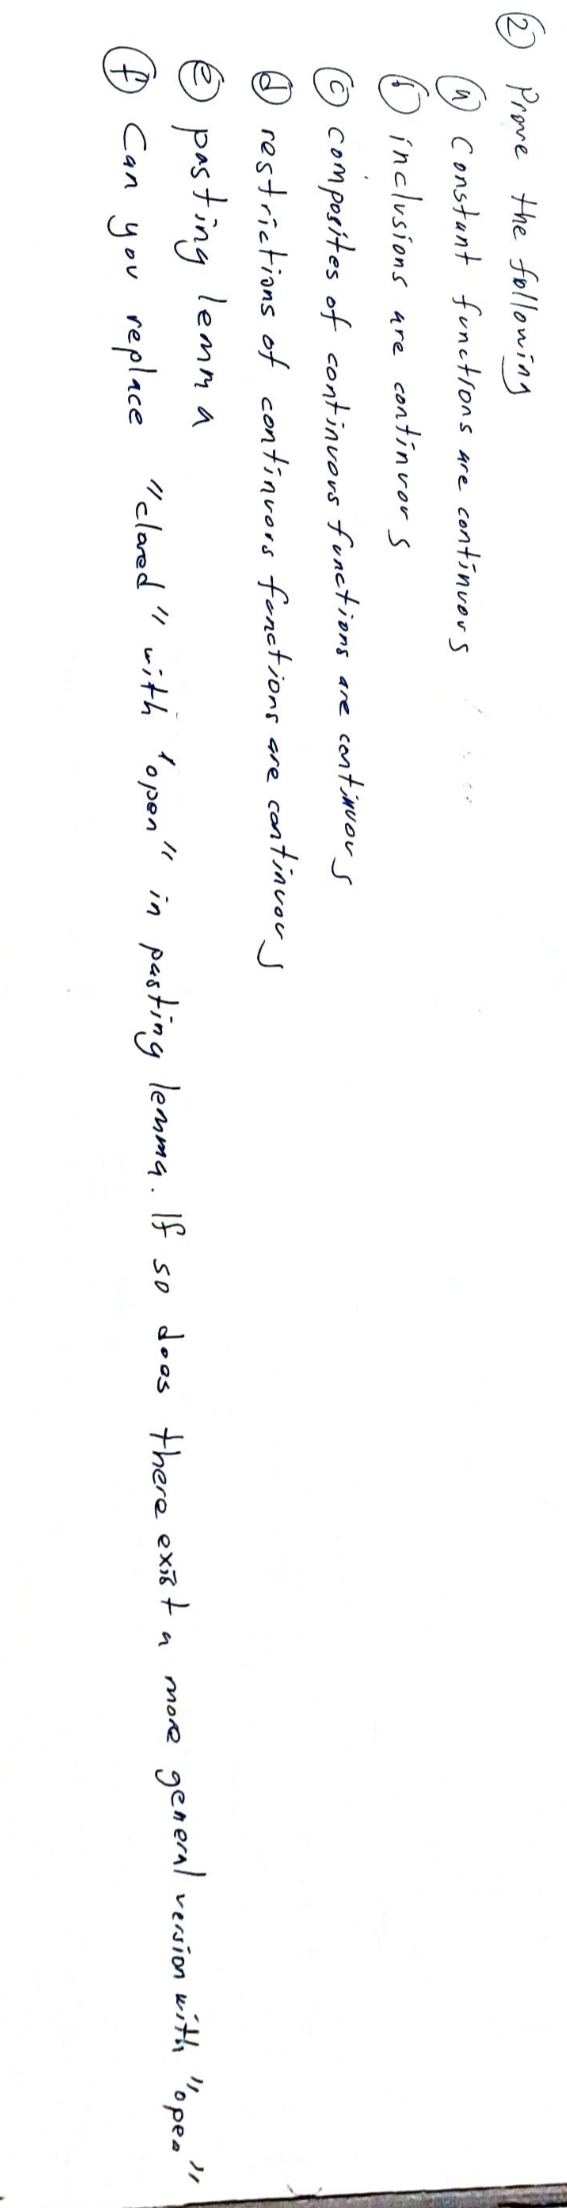 ② Prove the following
ⓐ Constant functions are continuous
ⓑ inclusions are continuous
ⓒ composites of continuous functions are continuous
ⓓ restrictions of continuous functions are continuous
ⓔ pasting lemma
ⓕ Can you replace "closed" with "open" in pasting lemma. If so does there exist a more general version with "open"